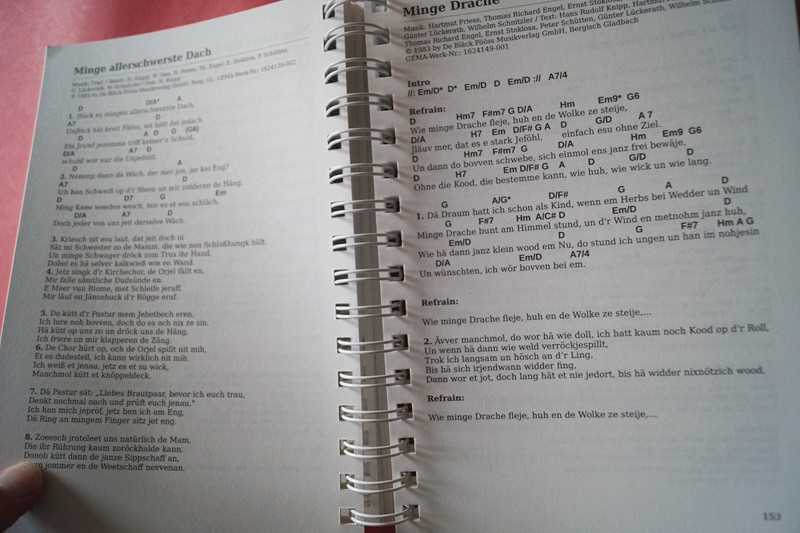 Minge allerschwerste Dach
D D/A* A
A7 D
D A D G (G6)
D/A A7 D
schuld wor nur die Unjeduld.
D A
2. Nemmp dann dä Wäch, der mer jon, jar kei Eng?
A7 D
Ich han Schweiß op d'r Meen un mir zidderen de Häng.
D D7 G Em
Ming Knee weeden weich, mir es et esu schläch,
D/A A7 D
Doch jeder von uns jeil derselve Wäch.
3. Kriesch nit esu laut, dat jeit doch ni
Nät mi Schwester zo de Mamm, die wie nen Schloßhungk hült.
Un minge Schwager dröck zom Trus ihr Hand.
Dobei es hä selver kalkwieß wie en Wand.
4. Jetz singk d'r Kirchechor, de Orjel fällt en,
Mir falle sämtliche Dudsünde en.
E Meer vun Blome, met Schleife jeraff,
Mir läuf en Jänsehuck d'r Rögge eraf.
5. Do kütt d'r Pastur mem Jebetboch eren,
Ich lure noh bovven, doch do es och nix ze sin.
Hä kütt op uns zo un dröck uns de Häng,
Ich friere un mir klapperen de Zäng.
6. De Chor hürt op, och de Orjel spillt nit mih,
Et es dudestell, ich kann wirklich nit mih.
Ich weiß et jenau, jetz es et su wick,
Manchmol kütt et knöppeldeck.
7. Dä Pastur sät: „Liebes Brautpaar, bevor ich euch trau,
Denkt nochmal nach und prüft euch jenau."
Ich han mich jepröf, jetz ben ich am Eng.
Dä Ring an mingem Finger sitz jet eng.
8. Zoeesch jrateleet uns natürlich de Mam,
Die ihr Rührung kaum zoröckhalde kann.
Donoh kütt dann de janze Sippschaff an,
jommer en de Weetschaff nevvenan.
Minge Drache
Musik: Hartmut Priess, Thomas Richard Engel, Ernst Stoklosa
Günter Lückerath, Wilhelm Schnitzler / Text: Hans Rudolf Knipp, Hartmut
Thomas Richard Engel, Ernst Stoklosa, Peter Schütten, Günter Lückerath, Wilhelm
© 1983 by De Bläck Fööss Musikverlag GmbH, Bergisch Gladbach
GEMA-Werk-Nr.: 1624149-001
Intro
//: Em/D* D* Em/D D Em/D :// A7/4
Refrain:
D Hm7 F#m7 G D/A Hm Em9* G6
Wie minge Drache fleje, huh en de Wolke ze steije,
D/A H7 Em D/F# G A D G/D A 7
Jläuv mer, dat es e stark Jeföhl, einfach esu ohne Ziel.
D Hm7 F#m7 G D/A Hm Em9 G6
Un dann do bovven schwebe, sich einmol ens janz frei bewäje,
D H7 Em D/F# G A D G/D D
Ohne die Kood, die bestemme kann, wie huh, wie wick un wie lang.
G A/G* D/F# G A D
1. Dä Draum hatt ich schon als Kind, wenn em Herbs bei Wedder un Wind
G F#7 Hm A/C# D Em/D D
Minge Drache bunt am Himmel stund, un d'r Wind en metnohm janz huh,
Em/D D G F#7 Hm A G
Wie hä dann janz klein wood em Nu, do stund ich ungen un han im nohjesin
D/A Em/D A7/4
Un wünschten, ich wör bovven bei em.
Refrain:
Wie minge Drache fleje, huh en de Wolke ze steije,...
2. Ävver manchmol, do wor hä wie doll, ich hatt kaum noch Kood op d'r Roll,
Un wenn hä dann wie weld verröckjespillt,
Trok ich langsam un hösch an d'r Ling,
Bis hä sich irjendwann widder fing,
Dann wor et jot, doch lang hät et nie jedort, bis hä widder nixnötzich wood.
Refrain:
Wie minge Drache fleje, huh en de Wolke ze steije,...
153